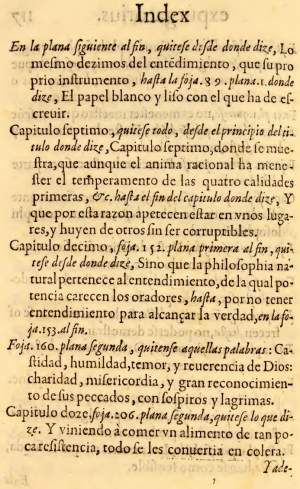 Index
En la plana siguiente al fin, quitese desde donde dize, Lo
mesmo dezimos del entẽdimiento, que su pro
prio instrumento, hasta la foja. 89. plana. 1. donde
dize, El papel blanco y liso con el que ha de es-
creuir.
Capitulo septimo, quitese todo, desde el principio del ti-
tulo donde dize, Capitulo septimo, donde se mue-
stra, que aunque el anima racional ha mene-
ster el temperamento de las quatro calidades
primeras, &c. hasta el fin del capitulo donde dize, Y
que por esta razon apetecen estar en vnos luga-
res, y huyen de otros sin ser corruptibles.
Capitulo decimo, foja. 152. plana primera al fin, qui-
tese desde donde dize, Sino que la philosophia na-
tural pertenece al entendimiento, de la qual po-
tencia carecen los oradores, hasta, por no tener
entendimiento para alcançar la verdad, en la fo-
ja. 153. al fin.
Foja. 160. plana segunda, quitense aquellas palabras: Ca-
stidad, humildad, temor, y reuerencia de Dios:
charidad, misericordia, y gran reconocimien-
to de sus peccados, con sospiros y lagrimas.
Capitulo doze, foja. 206. plana segunda, quitese lo que di-
ze. Y viniendo à comer vn alimento de tan po-
ca resistencia, todo se les conuertia en colera.
Yade-